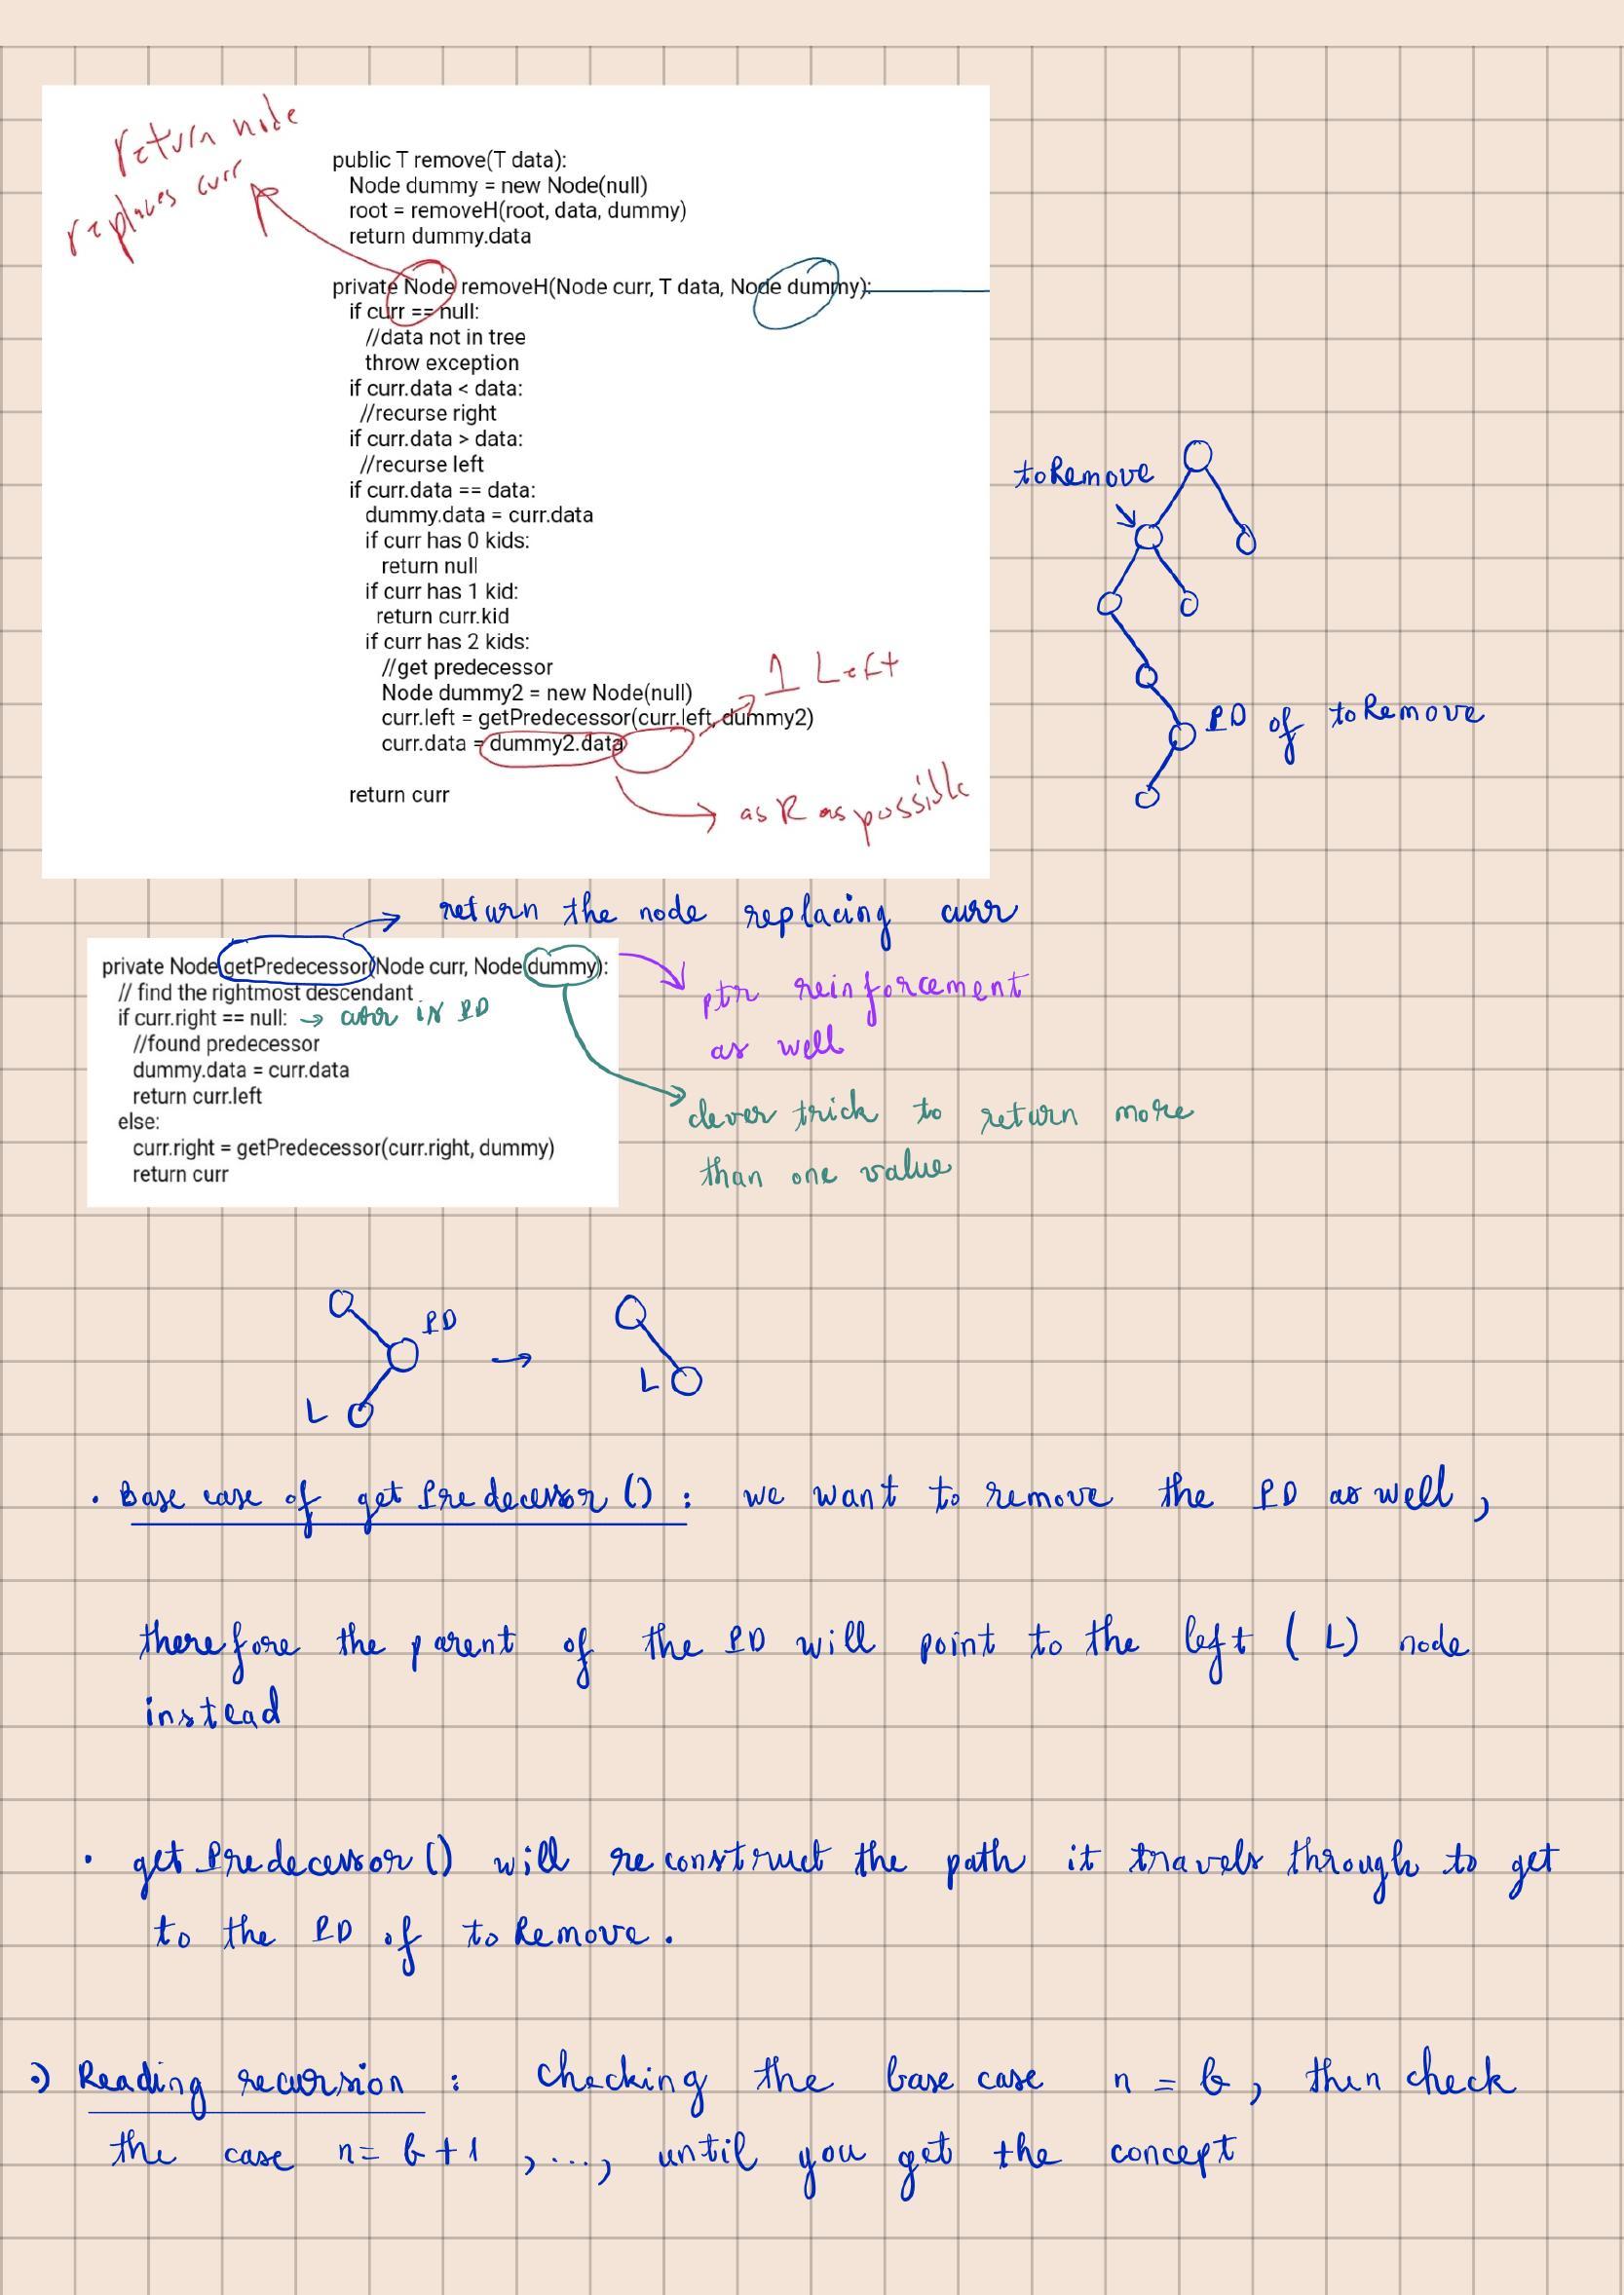 return node
replaces curr
public T remove(T data):
Node dummy = new Node(null)
root = removeH(root, data, dummy)
return dummy.data
private Node removeH(Node curr, T data, Node dummy):
if curr == null:
//data not in tree
throw exception
if curr.data < data:
//recurse right
if curr.data > data:
//recurse left
if curr.data == data:
dummy.data = curr.data
if curr has 0 kids:
return null
if curr has 1 kid:
return curr.kid
if curr has 2 kids:
//get predecessor
Node dummy2 = new Node(null)
curr.left = getPredecessor(curr.left, dummy2)
curr.data = dummy2.data
return curr
1 Left
as R as possible
toRemove
PD of toRemove
return the node replacing curr
private Node getPredecessor(Node curr, Node dummy):
// find the rightmost descendant
if curr.right == null: → curr is PD
//found predecessor
dummy.data = curr.data
return curr.left
else:
curr.right = getPredecessor(curr.right, dummy)
return curr
ptr reinforcement
as well
clever trick to return more
than one value
PD
L
L
• Base case of getPredecessor(): we want to remove the PD as well,
therefore the parent of the PD will point to the left (L) node
instead
• getPredecessor() will reconstruct the path it travels through to get
to the PD of toRemove.
Reading recursion: checking the base case n = b, then check
the case n = b+1, ..., until you get the concept